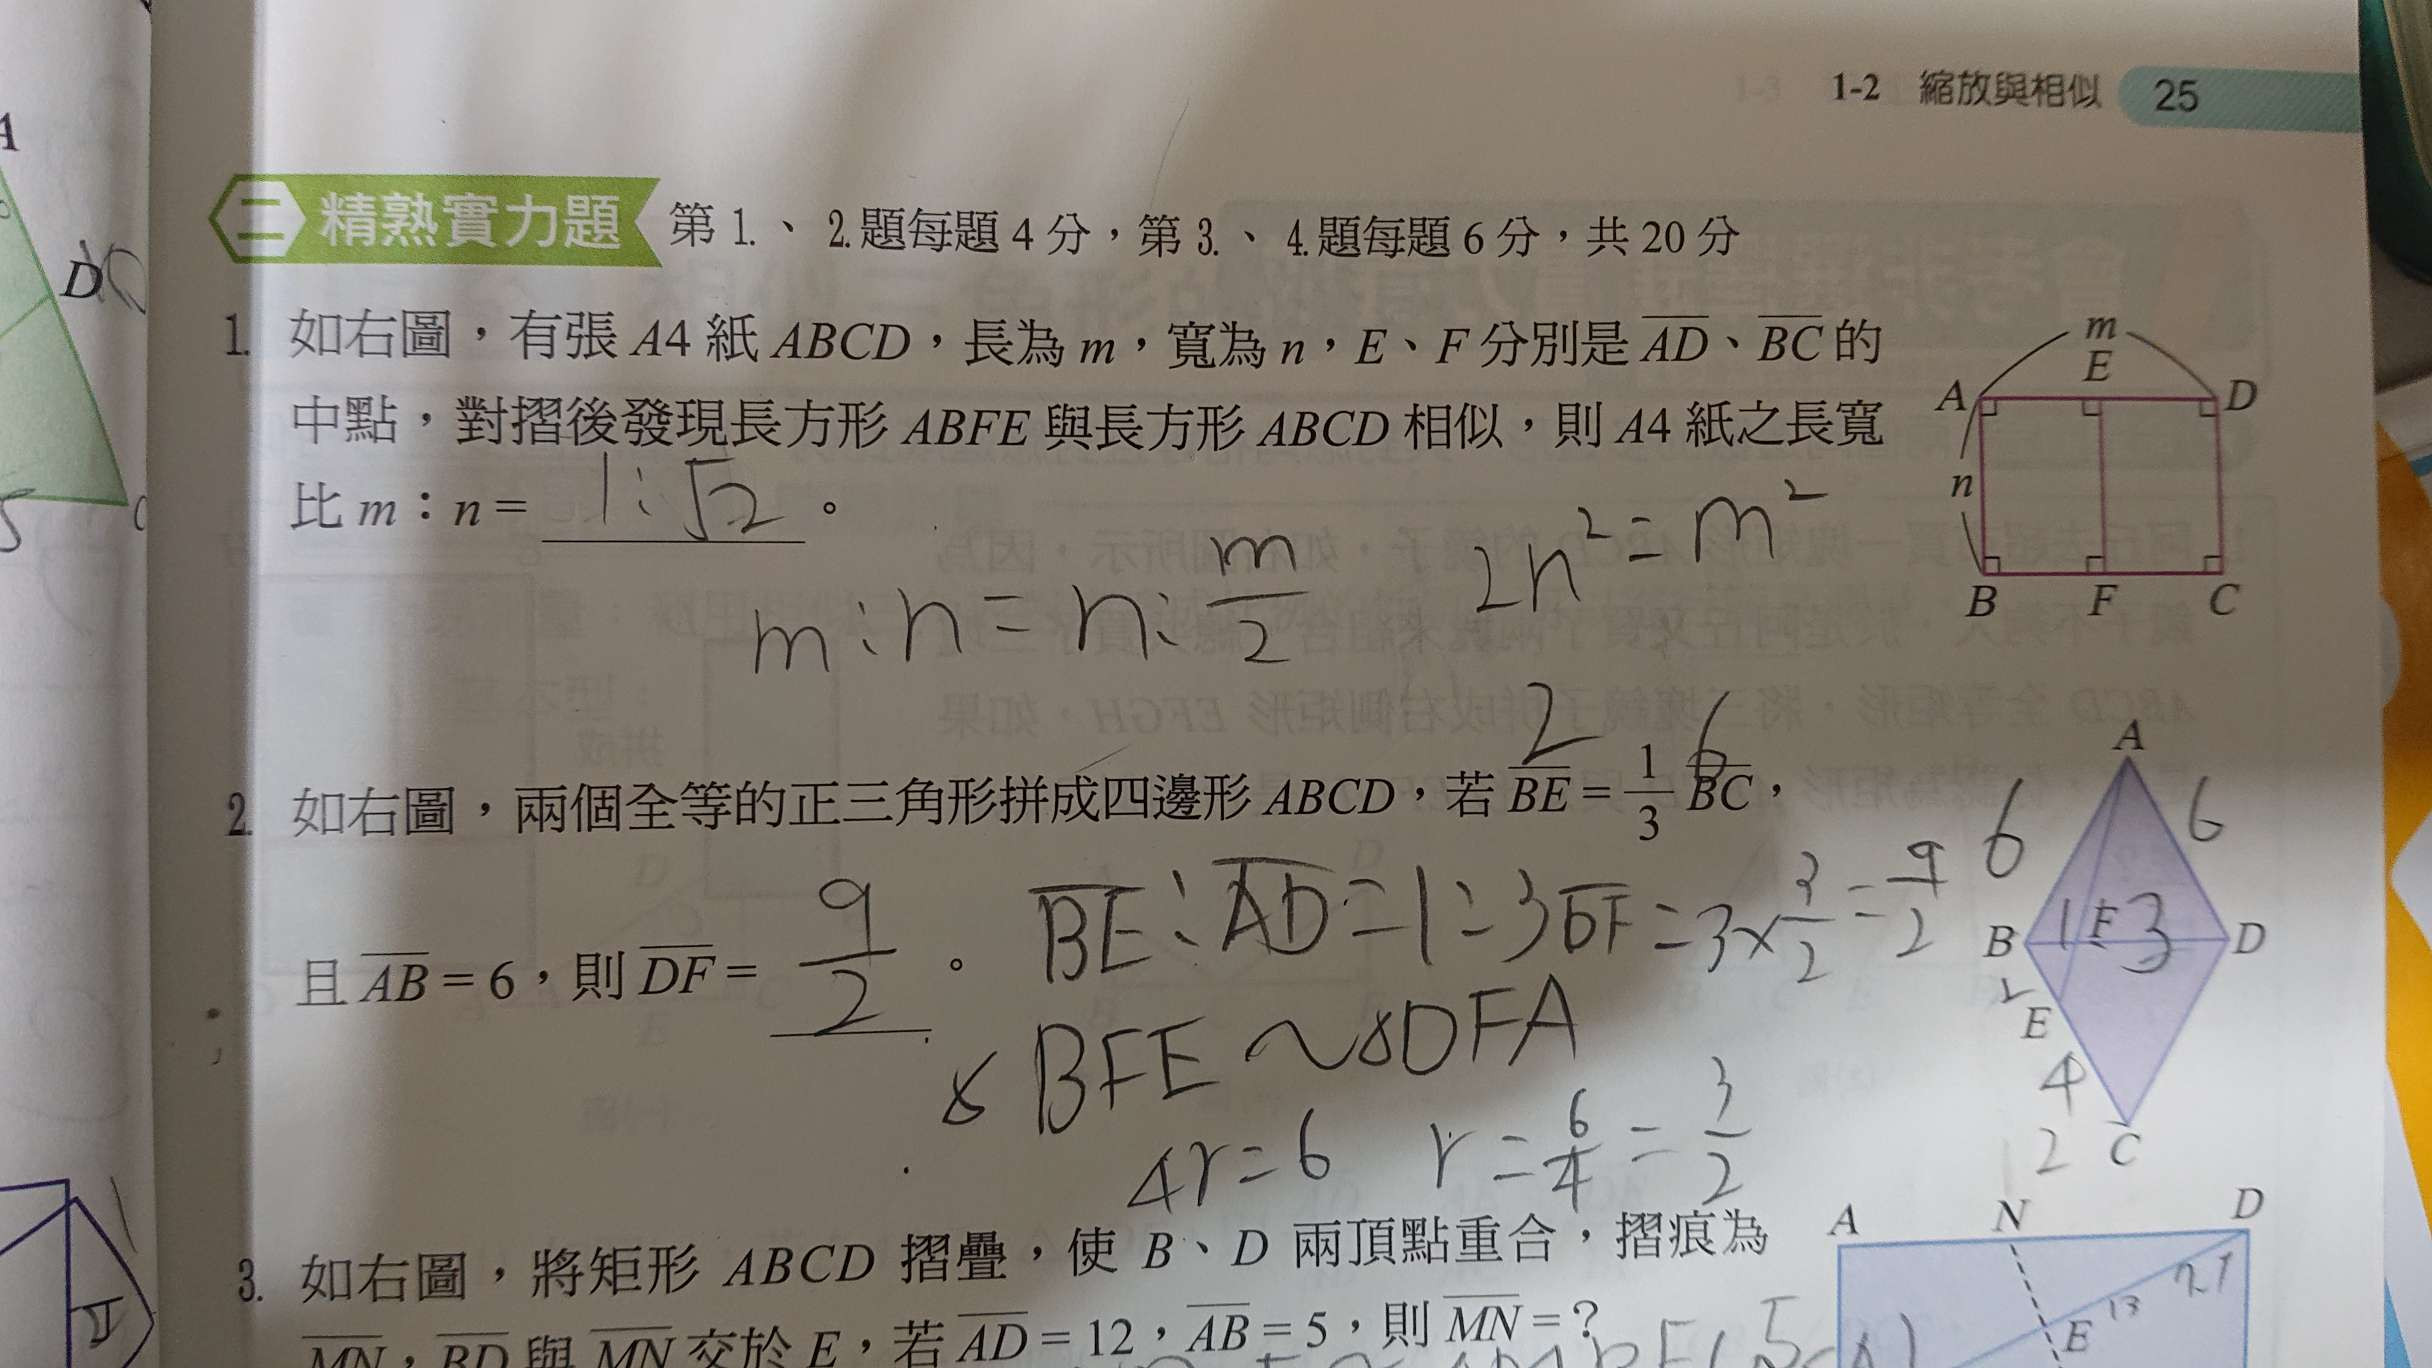 1-2 縮放與相似 25
二 精熟實力題 第 1.、2.題每題 4 分，第 3.、4.題每題 6 分，共 20 分
1. 如右圖，有張 A4 紙 ABCD，長為 m，寬為 n，E、F 分別是 AD、BC 的
中點，對摺後發現長方形 ABFE 與長方形 ABCD 相似，則 A4 紙之長寬
比 m：n = 1:√2 。
m:n = n: m/2
2n² = m²
m
E
A
D
n
B
F
C
2 6
2. 如右圖，兩個全等的正三角形拼成四邊形 ABCD，若 BE = 1/3 BC，
且 AB = 6，則 DF = 9/2 。
BE:AD = 1:3
DF = 3×3/2 = 9/2
BFE ~ DFA
4r = 6 r = 6/4 = 3/2
A
6
6
B
1
F
3
D
2
E
4
2
C
3. 如右圖，將矩形 ABCD 摺疊，使 B、D 兩頂點重合，摺痕為
MN，BD 與 MN 交於 E，若 AD = 12，AB = 5，則 MN = ？
A
N
D
13
E
A
D